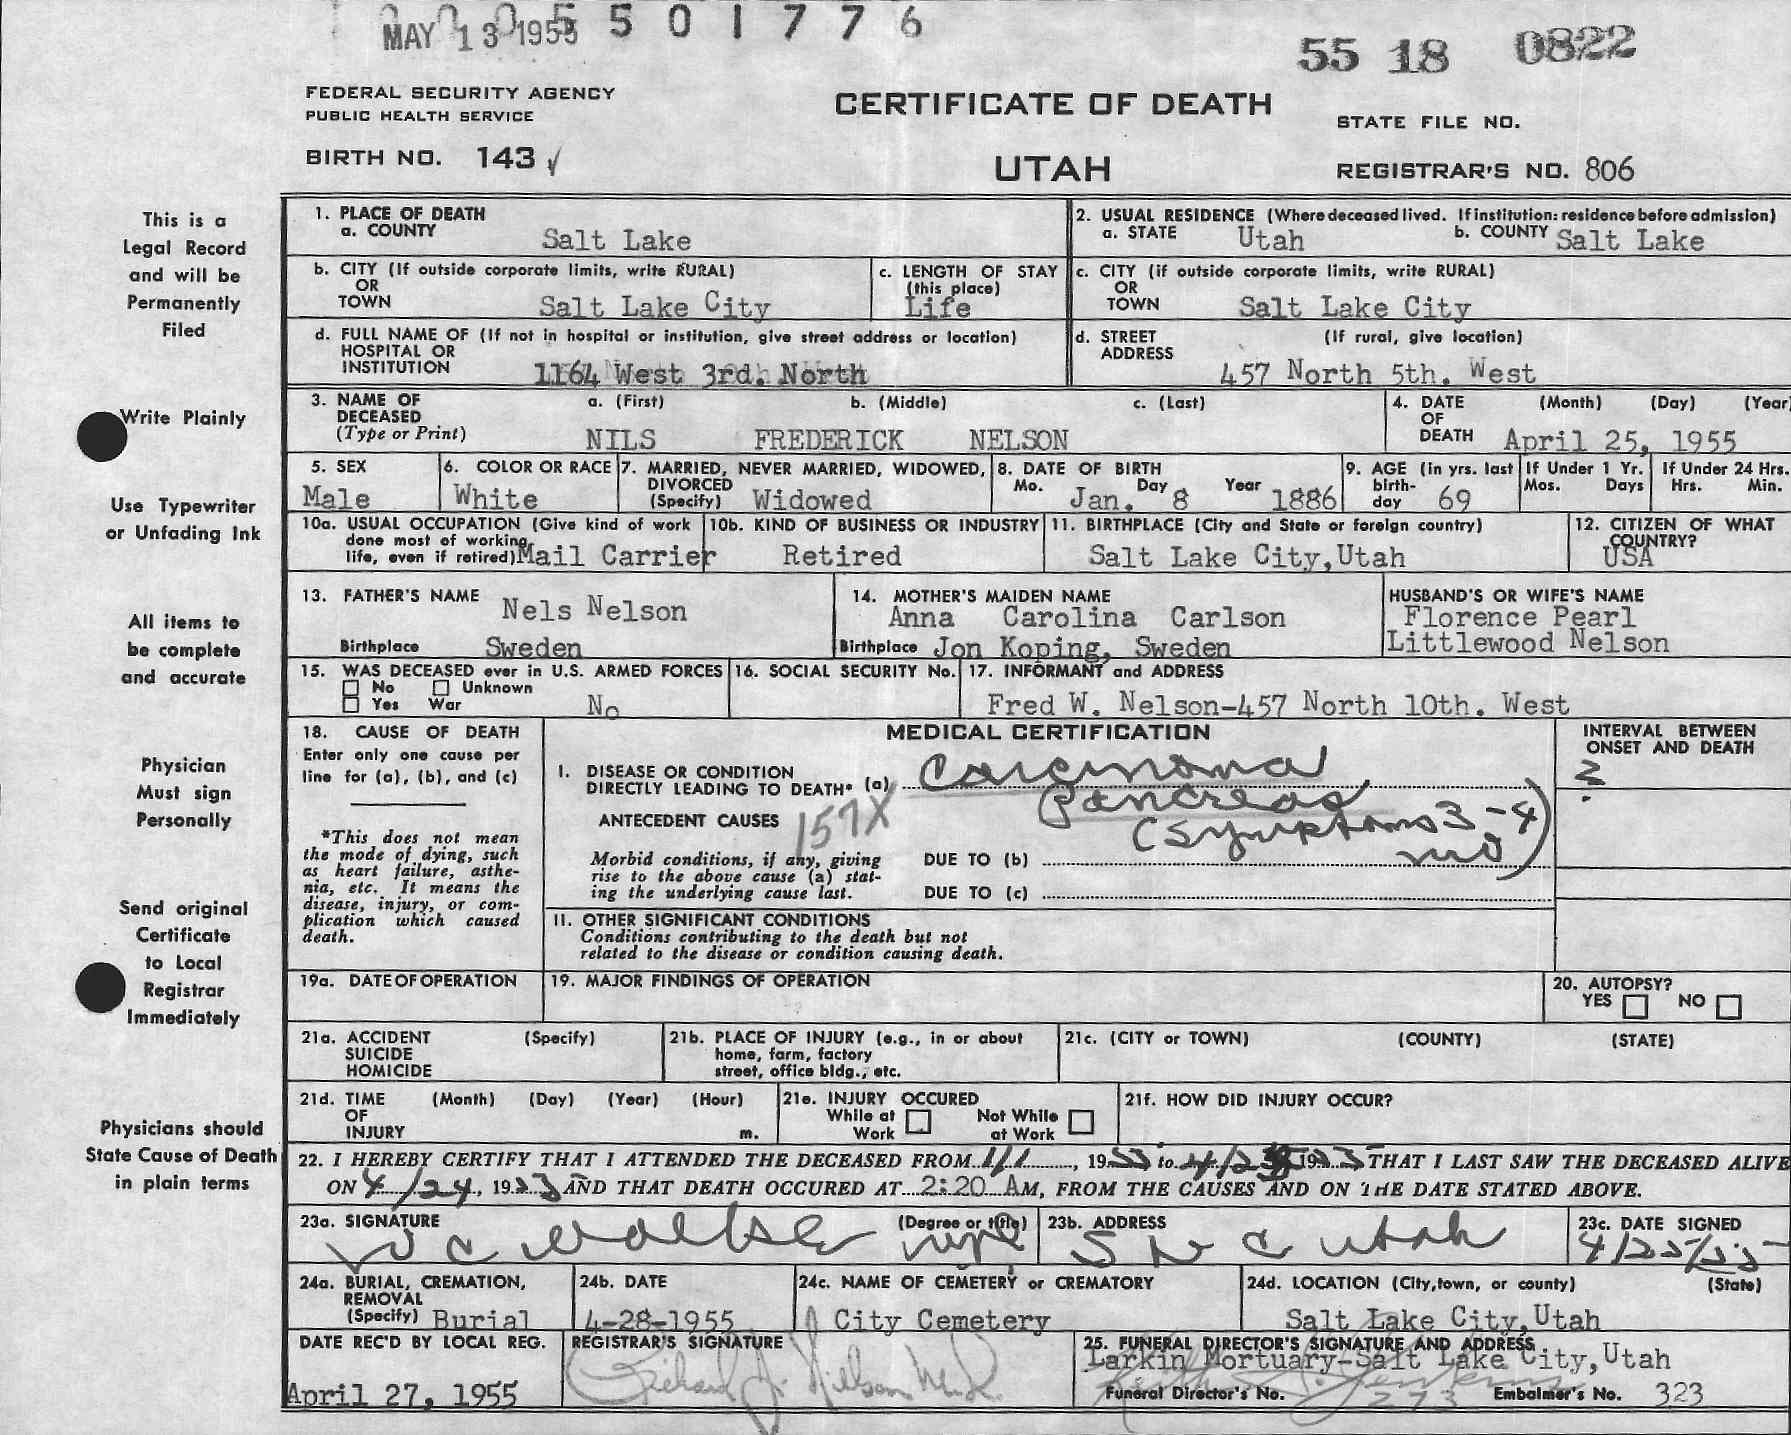 MAY 13 1955 5 5 0 1 7 7 6
55 18 0822
FEDERAL SECURITY AGENCY
PUBLIC HEALTH SERVICE
CERTIFICATE OF DEATH
STATE FILE NO.
BIRTH NO. 143 ✓
UTAH
REGISTRAR'S NO. 806
This is a
Legal Record
and will be
Permanently
Filed
Write Plainly
Use Typewriter
or Unfading Ink
All items to
be complete
and accurate
Physician
Must sign
Personally
Send original
Certificate
to Local
Registrar
Immediately
Physicians should
State Cause of Death
in plain terms
1. PLACE OF DEATH
a. COUNTY Salt Lake
2. USUAL RESIDENCE (Where deceased lived. If institution: residence before admission)
a. STATE Utah b. COUNTY Salt Lake
b. CITY (If outside corporate limits, write RURAL)
OR
TOWN Salt Lake City
c. LENGTH OF STAY
(this place)
Life
c. CITY (if outside corporate limits, write RURAL)
OR
TOWN Salt Lake City
d. FULL NAME OF (If not in hospital or institution, give street address or location)
HOSPITAL OR
INSTITUTION 1164 West 3rd. North
d. STREET (If rural, give location)
ADDRESS
457 North 5th. West
3. NAME OF a. (First) b. (Middle) c. (Last)
DECEASED
(Type or Print) NILS FREDERICK NELSON
4. DATE (Month) (Day) (Year)
OF
DEATH April 25, 1955
5. SEX
Male
6. COLOR OR RACE
White
7. MARRIED, NEVER MARRIED, WIDOWED,
DIVORCED
(Specify) Widowed
8. DATE OF BIRTH
Mo. Day Year
Jan. 8 1886
9. AGE (in yrs. last
birth-
day 69
If Under 1 Yr.
Mos. Days
If Under 24 Hrs.
Hrs. Min.
10a. USUAL OCCUPATION (Give kind of work
done most of working
life, even if retired) Mail Carrier
10b. KIND OF BUSINESS OR INDUSTRY
Retired
11. BIRTHPLACE (City and State or foreign country)
Salt Lake City, Utah
12. CITIZEN OF WHAT
COUNTRY?
USA
13. FATHER'S NAME Nels Nelson
Birthplace Sweden
14. MOTHER'S MAIDEN NAME
Anna Carolina Carlson
Birthplace Jon Koping, Sweden
HUSBAND'S OR WIFE'S NAME
Florence Pearl
Littlewood Nelson
15. WAS DECEASED ever in U.S. ARMED FORCES
No Unknown
Yes War No
16. SOCIAL SECURITY No.
17. INFORMANT and ADDRESS
Fred W. Nelson-457 North 10th. West
18. CAUSE OF DEATH
Enter only one cause per
line for (a), (b), and (c)
*This does not mean
the mode of dying, such
as heart failure, asthe-
nia, etc. It means the
disease, injury, or com-
plication which caused
death.
MEDICAL CERTIFICATION
INTERVAL BETWEEN
ONSET AND DEATH
?
I. DISEASE OR CONDITION
DIRECTLY LEADING TO DEATH* (a) Carcinoma
Pancreas
ANTECEDENT CAUSES 157X (Symptoms 3-4
mo)
Morbid conditions, if any, giving
rise to the above cause (a) stat-
ing the underlying cause last.
DUE TO (b)
DUE TO (c)
II. OTHER SIGNIFICANT CONDITIONS
Conditions contributing to the death but not
related to the disease or condition causing death.
19a. DATE OF OPERATION
19. MAJOR FINDINGS OF OPERATION
20. AUTOPSY?
YES NO
21a. ACCIDENT (Specify)
SUICIDE
HOMICIDE
21b. PLACE OF INJURY (e.g., in or about
home, farm, factory
street, office bldg., etc.
21c. (CITY or TOWN) (COUNTY) (STATE)
21d. TIME (Month) (Day) (Year) (Hour)
OF
INJURY m.
21e. INJURY OCCURED
While at Work
Not While at Work
21f. HOW DID INJURY OCCUR?
22. I HEREBY CERTIFY THAT I ATTENDED THE DECEASED FROM 1/1, 1955 to 4/25, 1955 THAT I LAST SAW THE DECEASED ALIVE
ON 4/24, 1955 AND THAT DEATH OCCURED AT 2:20 AM, FROM THE CAUSES AND ON THE DATE STATED ABOVE.
23a. SIGNATURE (Degree or title)
23b. ADDRESS
S L C Utah
23c. DATE SIGNED
4/25/55
24a. BURIAL, CREMATION,
REMOVAL
(Specify) Burial
24b. DATE
4-28-1955
24c. NAME OF CEMETERY or CREMATORY
City Cemetery
24d. LOCATION (City, town, or county) (State)
Salt Lake City, Utah
DATE REC'D BY LOCAL REG.
April 27, 1955
REGISTRAR'S SIGNATURE
25. FUNERAL DIRECTOR'S SIGNATURE AND ADDRESS
Larkin Mortuary-Salt Lake City, Utah
Funeral Director's No. 273 Embalmer's No. 323